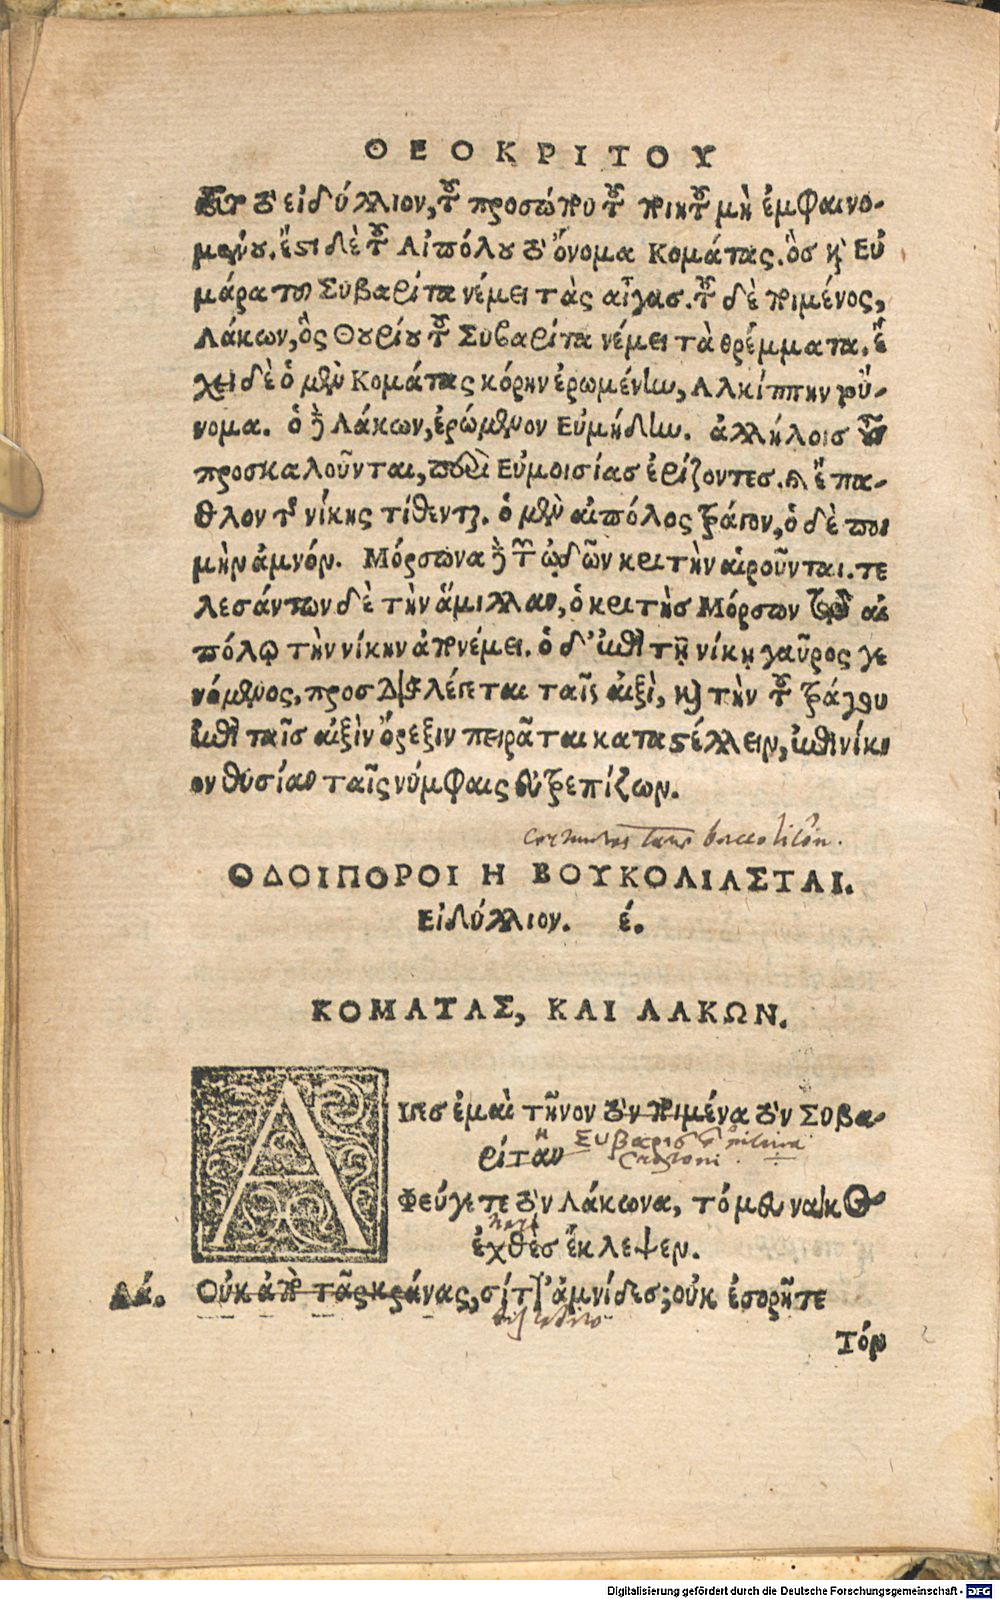 ΘΕΟΚΡΙΤΟΥ
τὸ εἰδύλλιον, τοῦ προσώπου τοῦ ποιητοῦ μὴ ἐμφαινο-
μένου. ἔστι δὲ τοῦ Αἰπόλου τὸ ὄνομα Κομάτας. ὃσ καὶ Εὐ
μάρα τοῦ Συβαρίτα νέμει τὰς αἶγασ. τοῦ δὲ ποιμένος,
Λάκων, ὃς Θουρίου τοῦ Συβαρίτα νέμει τὰ θρέμματα. ἔ
χει δὲ ὁ μὲν Κομάτας κόρην ἐρωμένην, Αλκίππην τοὔ-
νομα. ὁ δὲ Λάκων, ἐρώμενον Εὐμήδην. ἀλλήλοισ οὖν
προσκαλοῦνται, περὶ Εὐμοισίασ ἐρίζοντεσ. καὶ ἔπα-
θλον τῆς νίκης τίθενται. ὁ μὲν αἰπόλος τράγον, ὁ δὲ ποι
μὴν ἀμνόν. Μόρσωνα δὲ τῶν ᾠδῶν κριτὴν αἱροῦνται. τε
λεσάντων δὲ τὴν ἅμιλλαν, ὁ κριτὴσ Μόρσων τῷ αἰ
πόλῳ τὴν νίκην ἀπονέμει. ὁ δ' ἐπὶ τῇ νίκῃ γαῦρος γε
νόμενος, προσδιαλέγεται ταῖς αἰξὶ, καὶ τὴν τοῦ τράγου
ἐπὶ ταῖσ αἰξὶν ὄρεξιν πειρᾶται καταστέλλειν, ἐπινίκι
ον θυσίαν ταῖς νύμφαις εὐτρεπίζων.
ΟΔΟΙΠΟΡΟΙ Η ΒΟΥΚΟΛΙΑΣΤΑΙ.
Εἰδύλλιον. έ.
ΚΟΜΑΤΑΣ, ΚΑΙ ΛΑΚΩΝ.
ΑΙγεσ ἐμαὶ τῆνον τὸν ποιμένα τὸν Συβα-
ρίταν
Συβαρισ
Φεύγετε τὸν Λάκωνα, τό μευ νάκος
ἐχθὲσ ἔκλεψεν.
Λά. Οὐκ ἀπὸ τᾶς κράνας, σίττ' ἀμνίδεσ; οὐκ ἐσορῆτε
Τόν
Digitalisierung gefördert durch die Deutsche Forschungsgemeinschaft - DFG